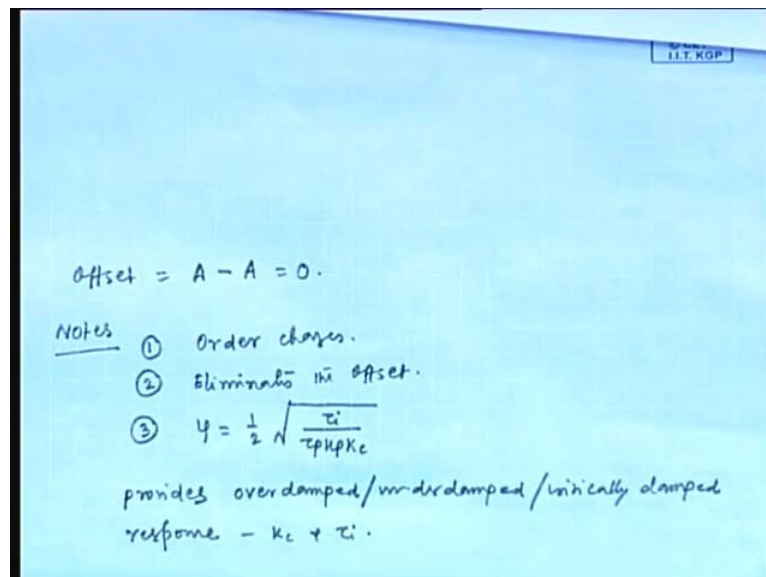 I.I.T. KGP
Offset = A - A = 0.
Notes
① Order chages.
② Eliminates the offset.
③ ψ = 1/2 √(τi / τpKpKc)
provides overdamped/underdamped/critically damped
response - Kc & τi.